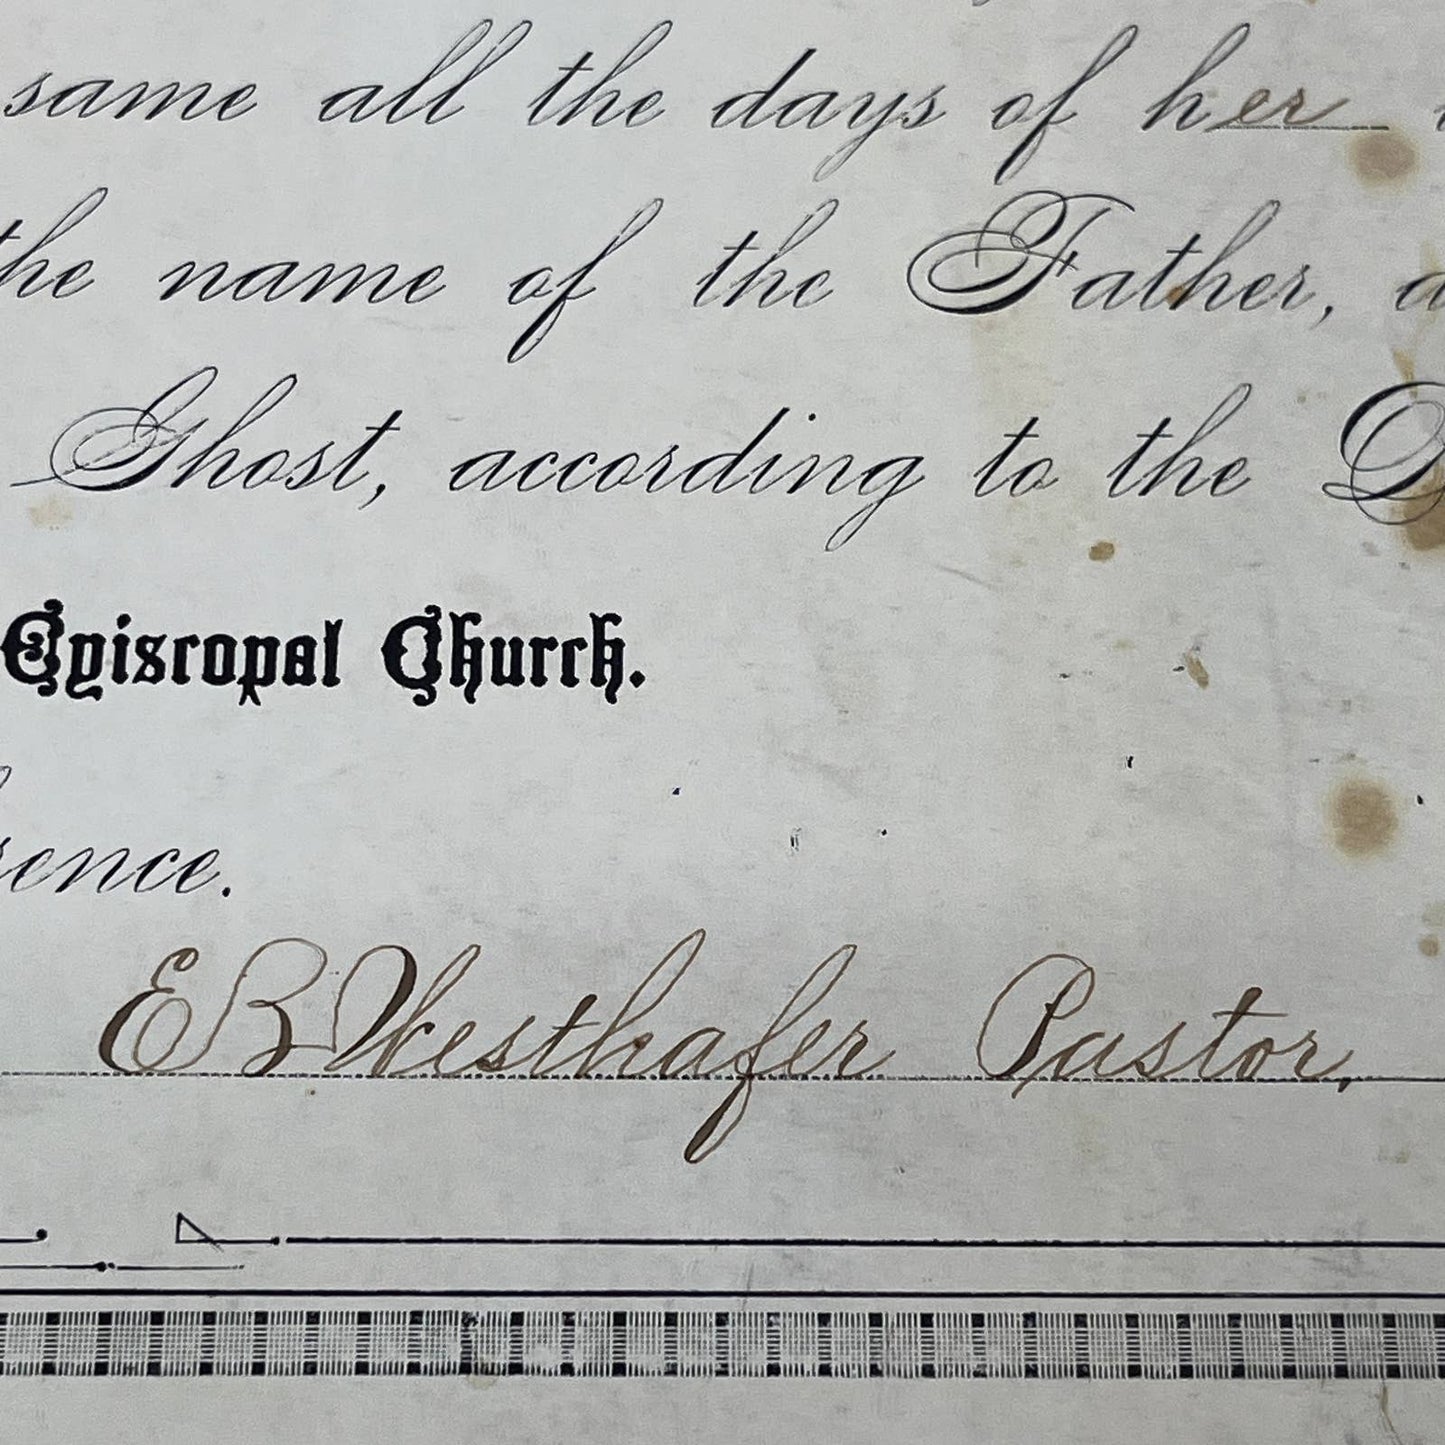 same all the days of her
the name of the Father,
Ghost, according to the
Episcopal Church.
rence.
E B Westhafer Pastor,